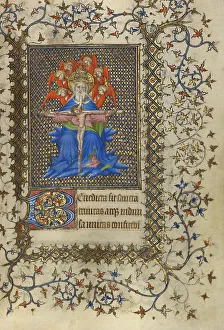 Benedicta sit sancta
trinitas atqz indiui
sa unitas confitebi